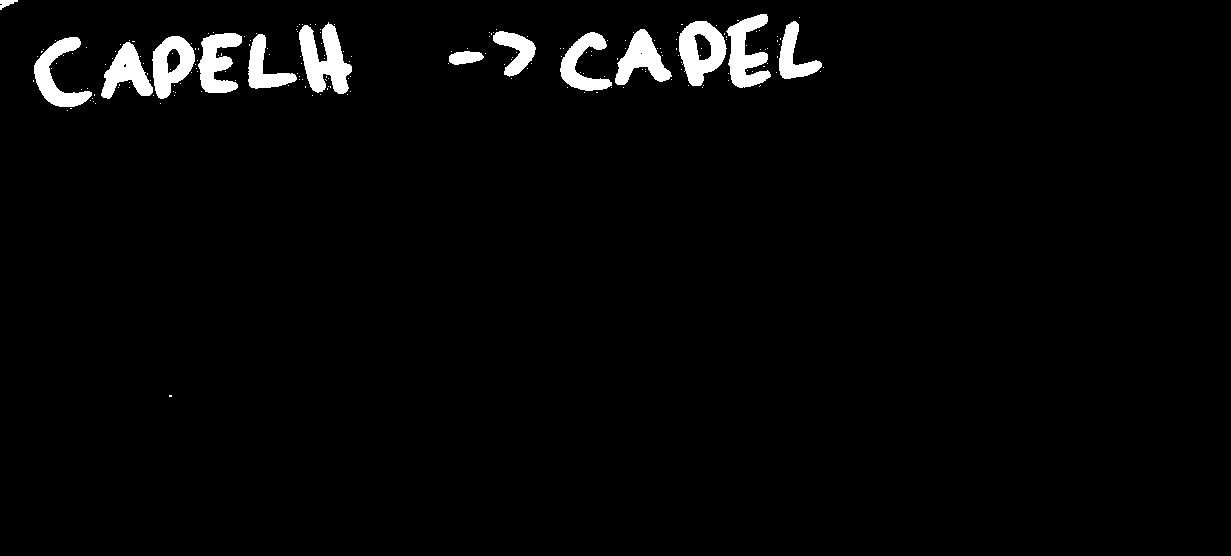 CAPELH -> CAPEL